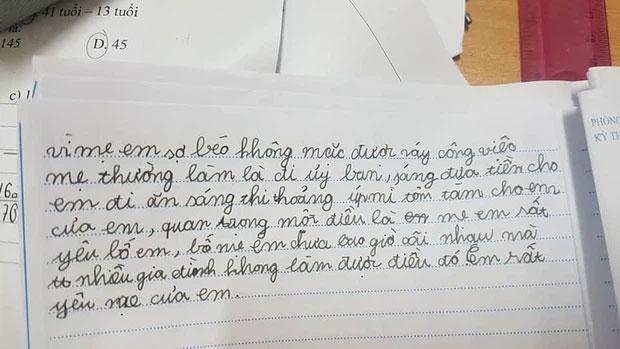 41 tuổi – 13 tuổi
145
D. 45
c) 1
PHÒNG
KỲ TH
16
70
vì mẹ em sợ béo không mặc được váy công việc
mẹ thường làm là đi úy ban, sáng đưa tiền cho
em đi ăn sáng thi thoảng úp mì tôm tăm cho em
của em, quan trong môt điều là mẹ em rất
yêu bố em, bố mẹ em chưa bao giờ cãi nhau mà
nhiều gia đình không làm được điều đó Em rất
yêu mẹ của em.